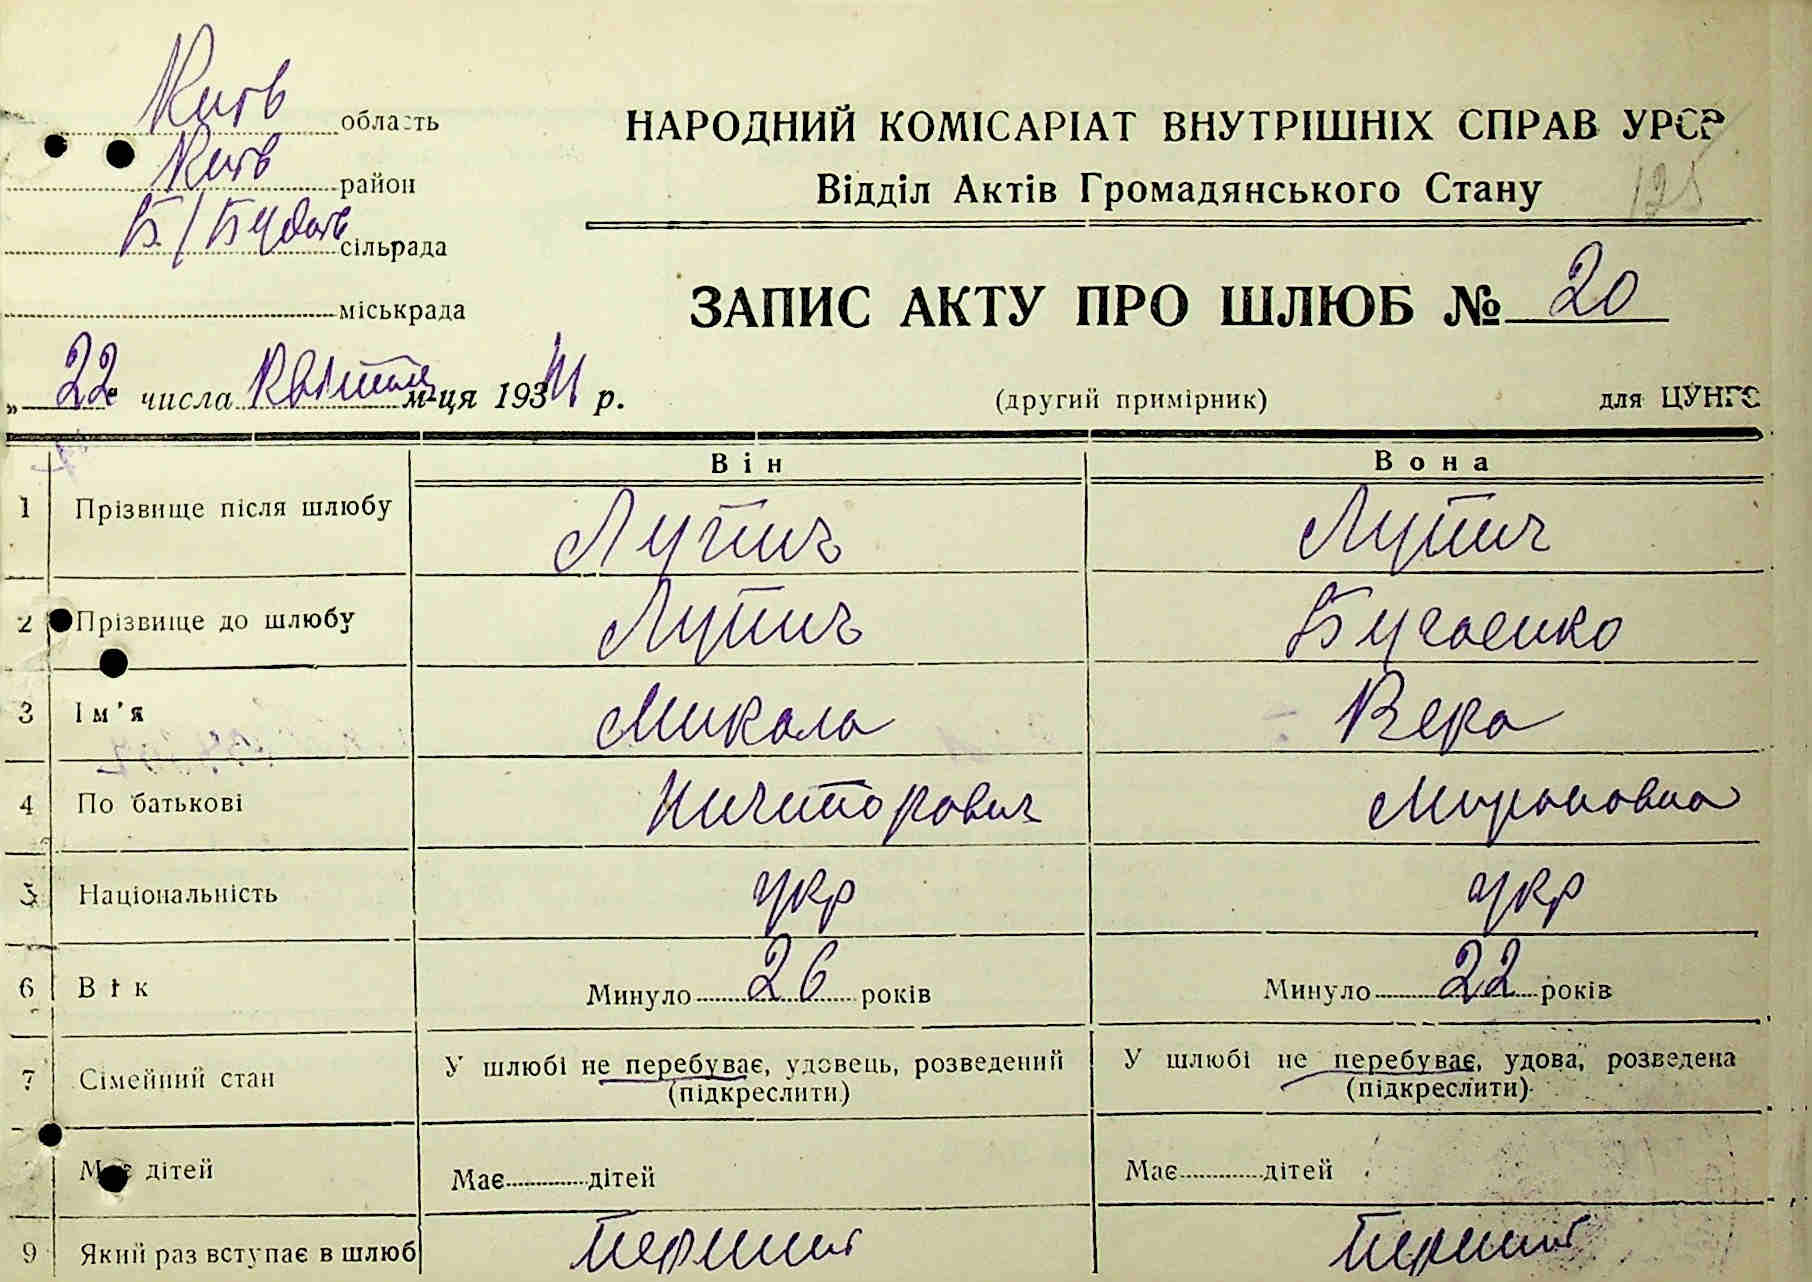 Київ область
Київ район
Б/Будов сільрада
міськрада
НАРОДНИЙ КОМІСАРІАТ ВНУТРІШНІХ СПРАВ УРСР
Відділ Актів Громадянського Стану
125
ЗАПИС АКТУ ПРО ШЛЮБ № 20
„ 22 числа Квітня м-ця 193 р.
(другий примірник)
для ЦУНГО
Він Вона
1 Прізвище після шлюбу Лупич Лупич
2 Прізвище до шлюбу Лупич Бугаенко
3 Ім'я Микола Вера
4 По батькові Ничипорович Мироновна
5 Національність укр укр
6 Вік Минуло 26 років Минуло 22 років
7 Сімейний стан У шлюбі не перебуває, удовець, розведений (підкреслити) У шлюбі не перебуває, удова, розведена (підкреслити)
Має дітей Має дітей Має дітей
9 Який раз вступає в шлюб Перший Перший